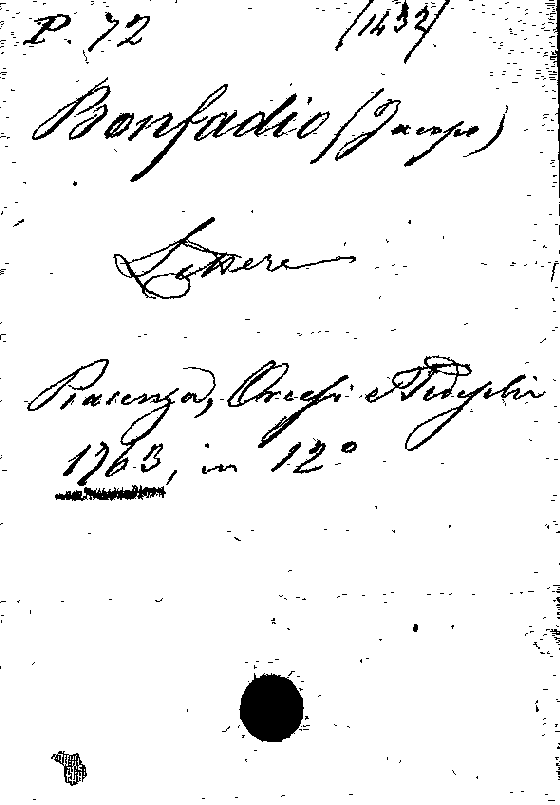 P. 72 (1432)
Bonfadio (Jacopo)
Lettere
Piacenza, Orcesi e Tedeschi
1763, in 12°